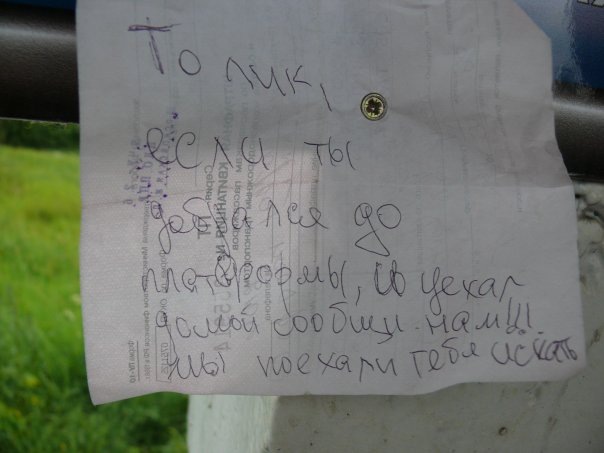 Толик,
если ты
добрался до
платформы, и уехал
домой сообщи нам!!!
мы поехали тебя искать